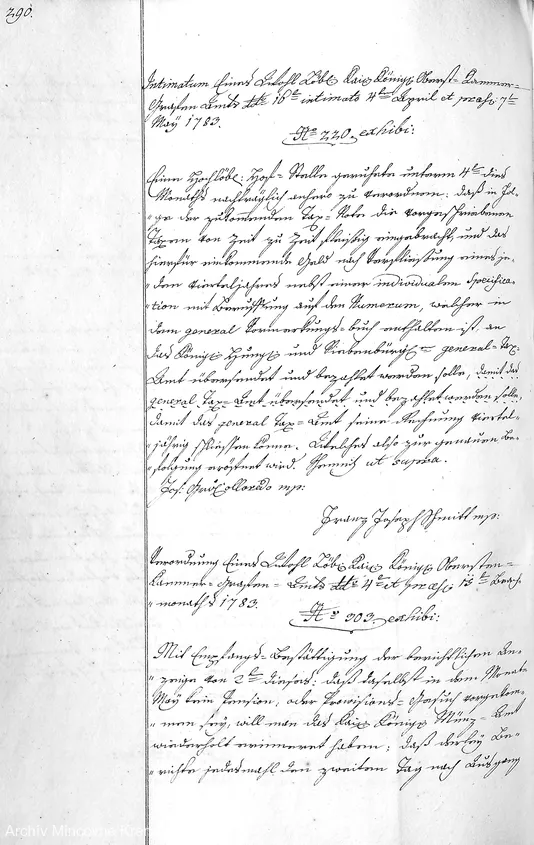 290.
Intimatum Eines Wohl Löbl. Kais. Königl. Oberst-Kammer-
Grafen Amts dto 16ten intimato 4ten April et praes: 7ten
May 1783.
No 220. exhibi:
Eine Hochlöbl: Hof-Stelle geruhete unterm 4ten dies
Monaths nachträglich anhero zu verordnen: daß in Fol-
ge der zukommenden Tax-Nota die vorgeschriebene
Taxen von Zeit zu Zeit fleißig eingebracht, und das
hierfür einkommende Geld nach Verfließung eines je-
den Vierteljahres nebst einer individualen Specifica-
tion mit Beruffung auf den Numerum, welcher in
dem general Vormerkungs-buch enthalten ist, an
das Königl. Hung. und Siebenbürg. general-Tax-
Amt übersendet und bezahlet werden solle, damit das
general Tax-Amt übersendet und bezahlet werden solle,
damit das general Tax-Amt seine Rechnung viertel-
jährig schliessen könne. Welches also zur genauen Be-
folgung eröfnet wird. Schemnitz ut supra.
Jos: Colloredo mp:
Franz Joseph Schmitt mp:
Verordnung Eines Wohl Löbl. Kais. Königl. Obersten-
Kammer-Grafen-Amts dto 4t et praes: 13ten Brach-
monaths 1783.
No 303. exhibi:
Mit Empfangs-Bestättigung der berichtlichen An-
zeige von 2ten dieses: daß daselbst in dem Monat
May kein Pension, oder Provisions-Gesuch vorgekom-
men sey, will man das Kais. Königl. Münz-Amt
wiederholt erinneret haben: daß derley Be-
richte jedesmahl den zweiten Tag nach Ausgang
Archiv Mincovne Krem